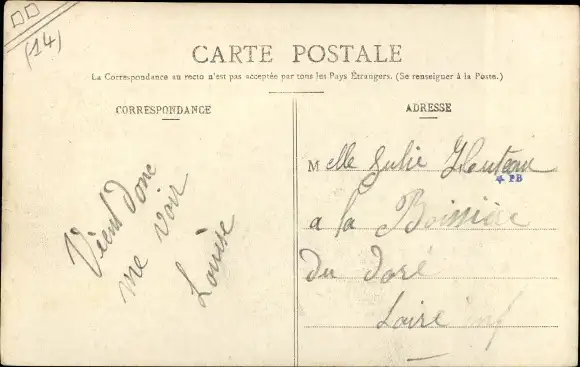 (14)
CARTE POSTALE
La Correspondance au recto n'est pas acceptée par tous les Pays Étrangers. (Se renseigner à la Poste.)
CORRESPONDANCE
Vient donc
me voir
Louise
ADRESSE
Melle Julie
PB
a la Boissière
du doré
Loire inf